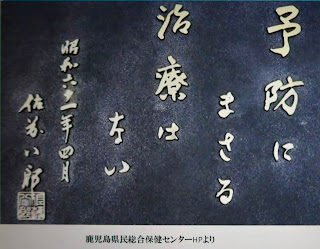 予防に
まさる
治療は
ない
昭和六十一年四月
佐藤八郎
鹿児島県民総合保健センターHPより